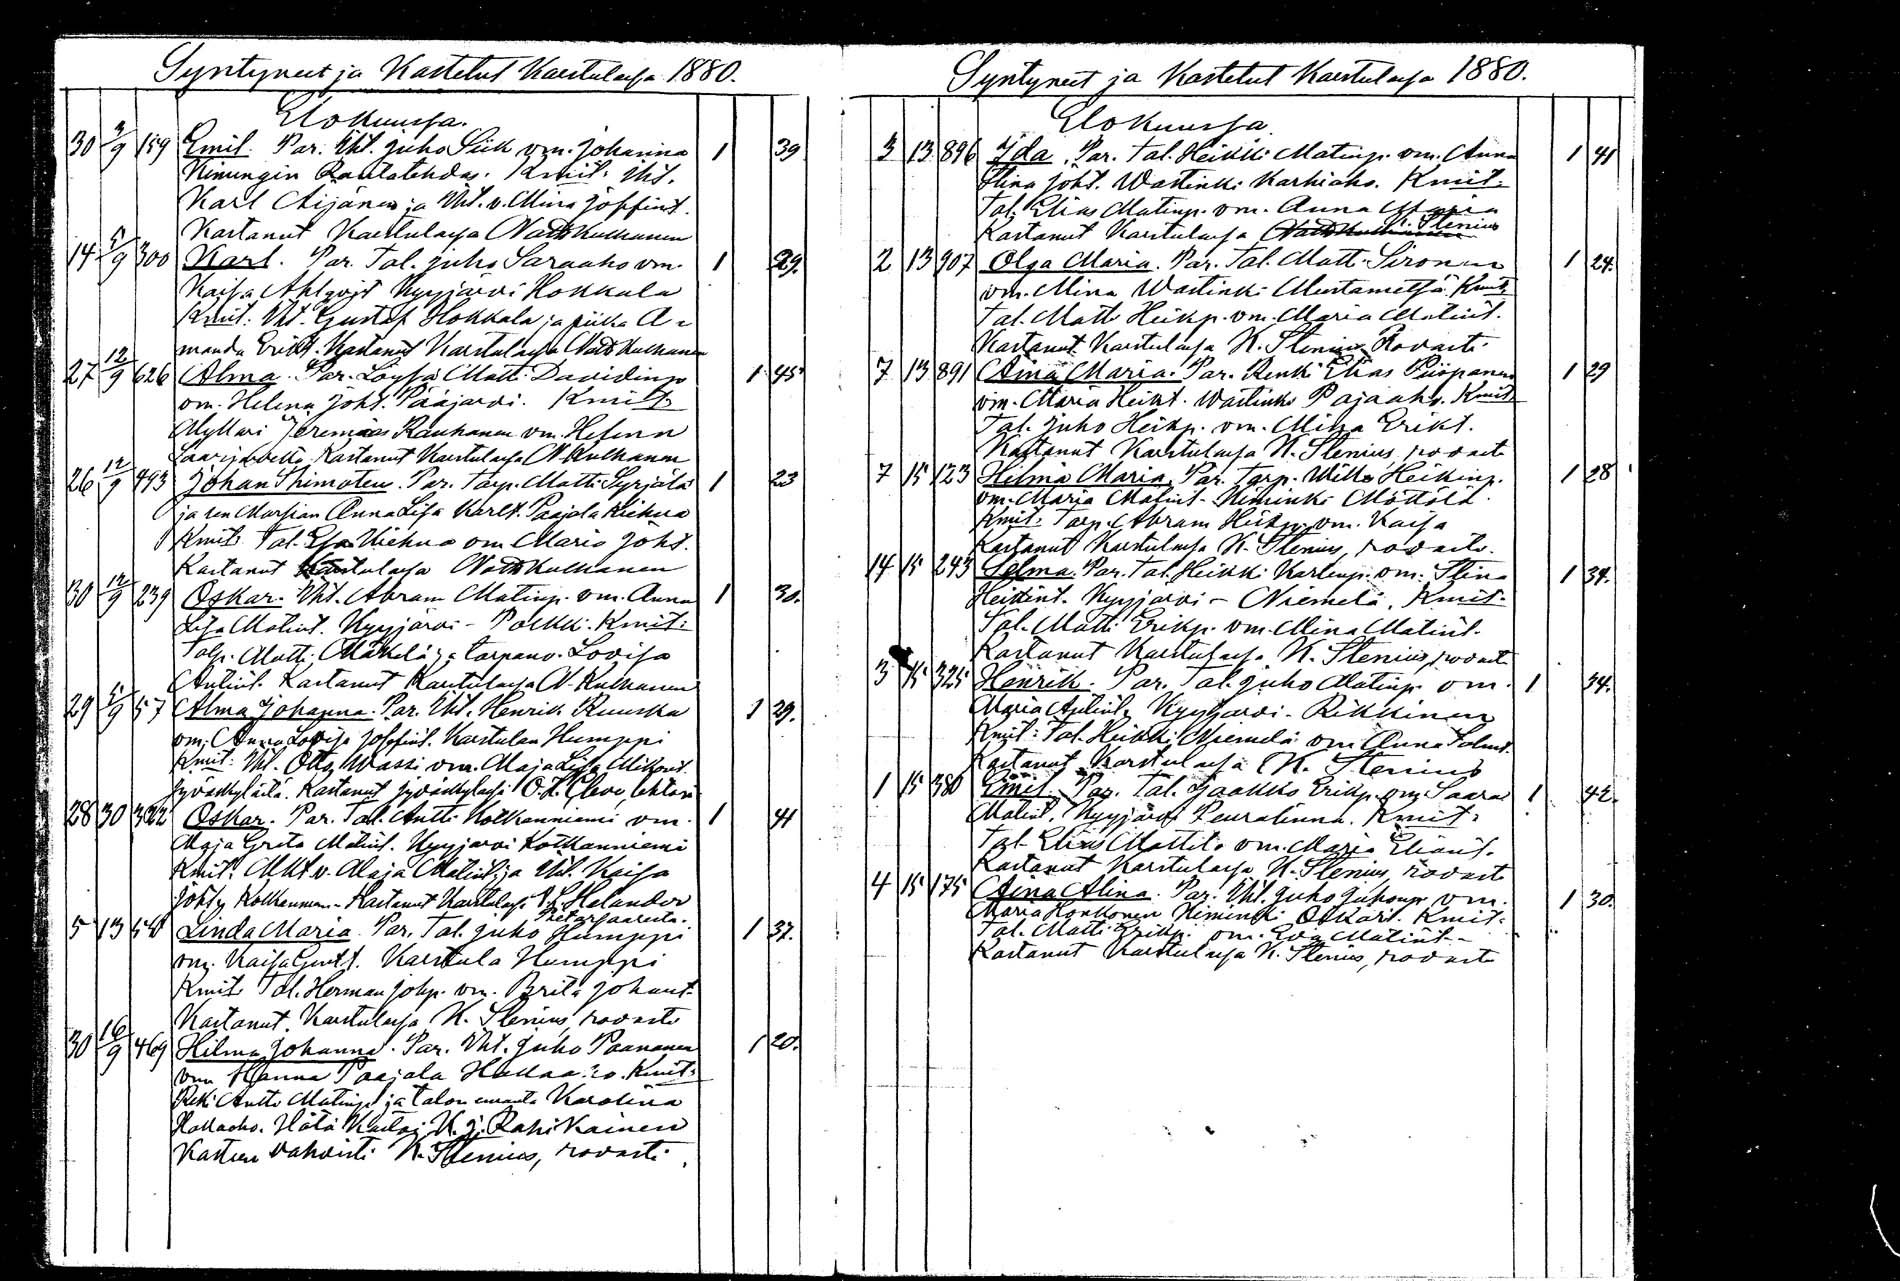 Syntyneet ja Kastetut Karstulassa 1880.
Elokuussa.
30 3/9 159 Emil. Par. Iht. Juho Siik vm. Johanna 1 39
Kimingin Rautatehdas. Kmit. Iht.
Karl Äijänen ja Iht. v. Mina Joffint.
Kastanut Karstulassa Kulhanen
14 5/9 300 Karl. Par. Tal. Juho Saraaho vm. 1 29.
Kaisa Ahlqvist Kyyjärvi Hokkala
Kmit. Iht. Gustaf Hokkala ja piika A-
manda Erikt. Kastanut Karstulassa Kulhanen
27 12/9 626 Alma. Par. Loysä Matti Davidinp 1 45
vm. Helena Joht. Pääjärvi. Kmit.
Mylläri Jeremias Rauhanen vm. Helena
Saarijärvellä. Kastanut Karstulassa N. Kulhanen
26 12/9 493 Johan Thimoteus. Par. Torp. Matti Syrjälä 1 23
ja sen Morsian Anna Lisa Karlt. Paajala Kiehua
Kmit. Tal. Esa Kiehua vm Maria Joht.
Kastanut Karstulassa Kulhanen
30 12/9 239 Oskar. Iht. Abram Matinp. vm. Anna 1 30.
Lisa Matint. Kyyjärvi - Poikki. Kmit:
Matti Mäkelä ja torpanv. Lovisa
Antint. Kastanut Karstulassa N. Kulhanen
29 5/9 57 Alma Johanna. Par. Iht. Henrik Ruuska 1 29.
vm. Anna Lovisa Josefint. Karstulan Humppi
Kmit. Iht. Otto Wassi vm. Maja Lisa Mikont.
Jyväskylästä. Kastanut Jyväskylässä O. Z. Cleve, lehtori
28 30 322 Oskar. Par. Tal. Antti Kotkanniemi vm. 1 41
Maja Greta Matint. Kyyjärvi Kotkanniemi
Kmit. v. Maja Matint. ja Iht. Kaisa
Joht. Kastanut Karstulassa Helander
Pietarsaaresta.
5 13 Linda Maria. Par. Tal. Juho Humppi 1 37.
vm. Kaisa Gust. Karstula Humppi
Kmit. Tal. Herman Johp. vm. Brita Johant.
Kastanut Karstulassa K. Stenius, rovasti
30 16/9 469 Hilma Johanna. Par. Iht. Juho Paananen 1 20.
vm Hanna Paajala Kmit:
Antti Matinp. ja talon emäntä Karolina
Hätä Kastoi K. J. Rahikainen
Kasteen vahvisti K. Stenius, rovasti.
Syntyneet ja Kastetut Karstulassa 1880.
Elokuussa.
3 13 896 Ida. Par. Tal. Heikki Matinp. vm. Anna 1 41
Stina Joht. Wastinki Karhiaho. Kmit:
Tal. Elias Matinp. vm. Anna Maria
Kastanut Karstulassa K. Stenius
2 13 907 Olga Maria. Par. Tal. Matti Sironen 1 24.
vm. Mina Wastinki Mustametsä Kmit:
Tal. Matti Heikp. vm. Maria Matint.
Kastanut Karstulassa K. Stenius Rovasti
7 13 891 Aina Maria. Par. Renki Elias Piispanen 1 29
vm. Maria Heikt. Wastinki Pajaaho. Kmit.
Tal. Juho Heikp. vm. Mina Erikt.
Kastanut Karstulassa K. Stenius, rovasti
7 15 123 Hilma Maria. Par. Torp. Wille Heikinp. 1 28
vm. Maria Matint. Kiminki Möttölä.
Kmit: Torp. Abram Heikp. vm. Kaisa
Kastanut Karstulassa K. Stenius, rovasti.
14 15 243 Selma. Par. Tal. Heikki Karlenp. vm. Stina 1 34.
Heikint. Kyyjärvi - Niemelä. Kmit.
Tal. Matti Erikp. vm. Mina Matint.
Kastanut Karstulassa K. Stenius, rovasti
3 15 325 Henrik. Par. Tal. Juho Matinp. vm. 1 34.
Maria Antint. Kyyjärvi - Rikkinen
Kmit: Tal. Heikki Niemelä vm Anna Salmt.
Kastanut Karstulassa K. Stenius
1 15 380 Emil. Par. Tal. Jaakko Erikp. vm. Saara 1 42.
Matint. Kyyjärvi Peuralinna. Kmit:
Tal. Elias Mattila vm. Maria Eliant.
Kastanut Karstulassa K. Stenius, rovasti
4 15 175 Aina Alina. Par. Iht. Juho Juhonp. vm. 1 30.
Maria Honkonen Kiminki Oskari. Kmit.
Tal. Matti Erikp. vm. Eva Matint.
Kastanut Karstulassa K. Stenius, rovasti